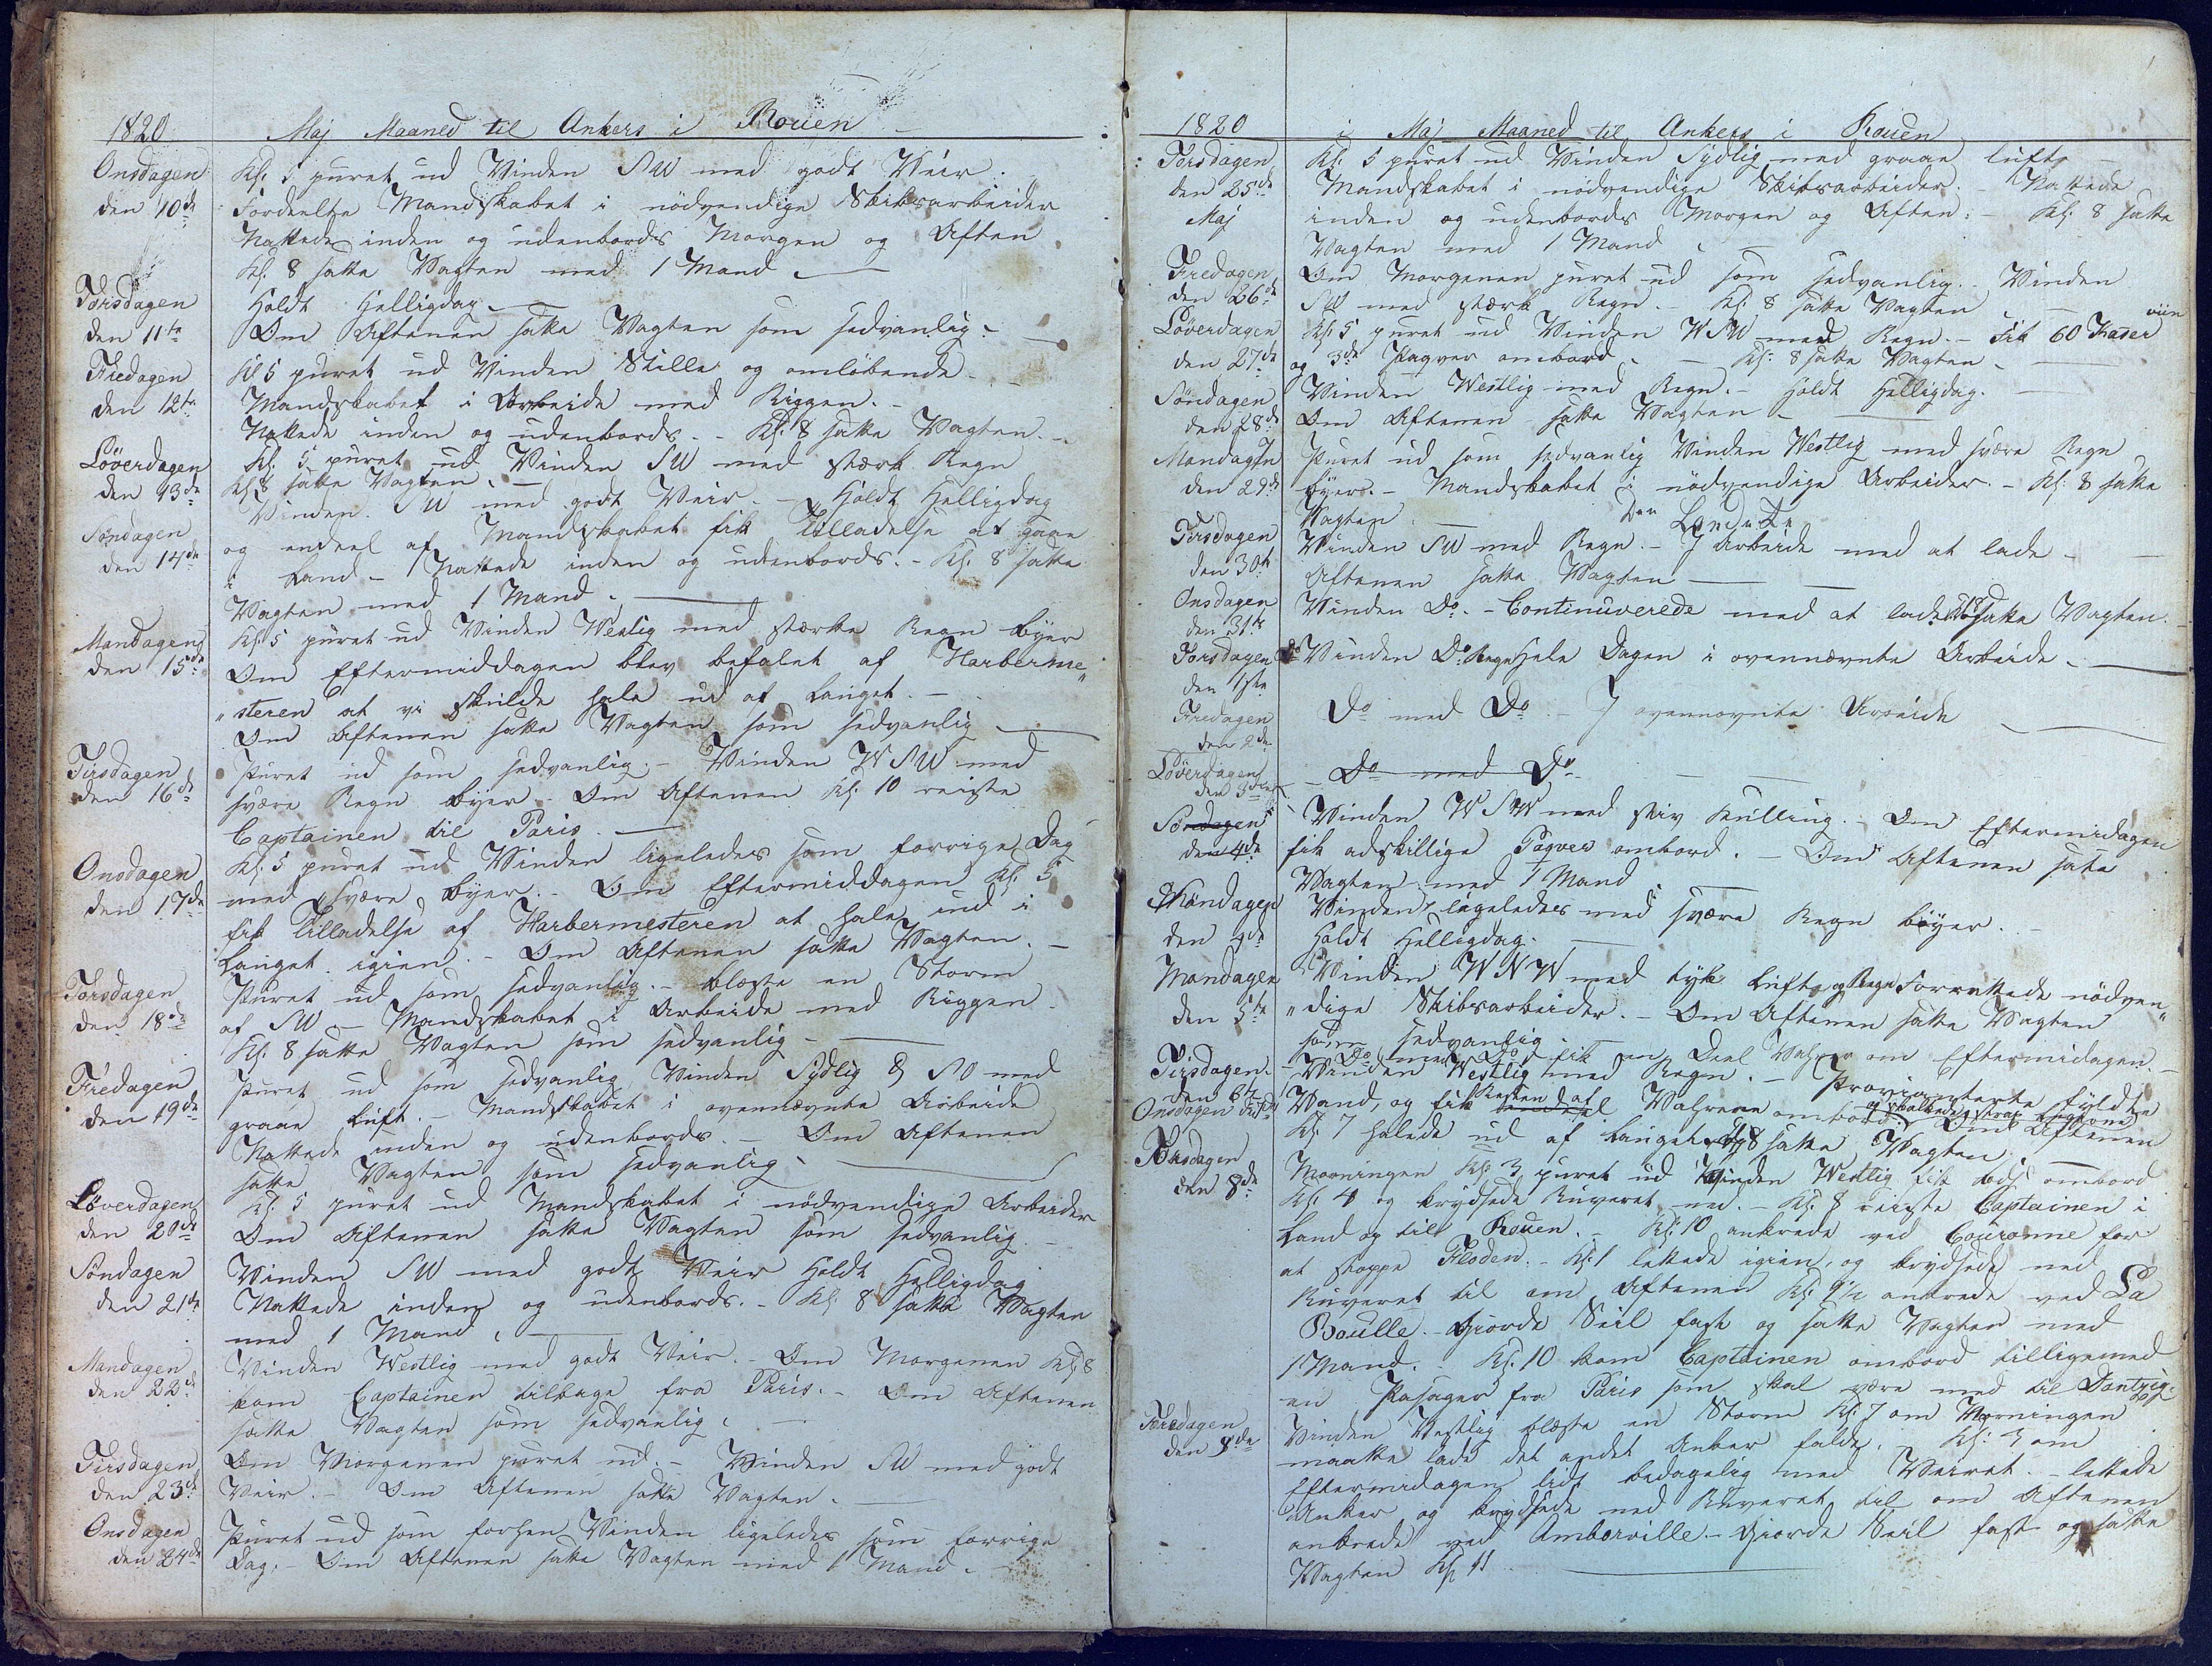 1820 Maj Maaned til Ankers i Rouen
Onsdagen Kl: 5 purret ud Vinden SW med godt Veir.
den 10de Fordeelte Mandskabet i nödvendige Skibsarbeider
Nattede inden og udenbords Morgen og Aften
Kl: 8 satte Vagten med 1 Mand.
Torsdagen Holdt Helligdag.
den 11te Om Aftenen satte Vagten som sedvanlig.
Fredagen Kl 5 purret ud Vinden Stille og omlöbende
den 12te Mandskabet i Arbeide med Riggen.
Nattede inden og udenbords. - Kl: 8 satte Vagten.
Löverdagen Kl: 5 purret ud Vinden SW med stærk Regn
den 13de Kl 8 satte Vagten.
Söndagen Vinden SW med godt Veir. - Holdt Helligdag
den 14de og endeel af Mandskabet fik Tilladelse at gaae
i Land - Nattede inden og udenbords. - Kl: 8 satte
Vagten med 1 Mand.
Mandagen Kl: 5 purret ud Vinden Westlig med stærke Regn Byer
den 15de Om Eftermiddagen blev befalet af Harberme„
„steren at vi skulde hale ud af Lauget. -
Om Aftenen satte Vagten som sedvanlig
Tirsdagen Purret ud som sedvanlig. - Vinden WSW med
den 16de svære Regn Byer. Om Aftenen Kl: 10 reiste
Captainen til Paris.
Onsdagen Kl: 5 purret ud Vinden ligeledes som forrige Dag
den 17de med svære Byer. - Om Eftermiddagen Kl: 5
fik Tilladelse af Harbermesteren at hale ind i
Lauget igien. - Om Aftenen satte Vagten. -
Torsdagen Purret ud som sedvanlig. - blæste en Storm
den 18de af SW - Mandskabet i Arbeide med Riggen
Kl: 8 satte Vagten som sedvanlig -
Fredagen Purret ud som sedvanlig Vinden Sydlig & SO med
den 19de graae Luft. - Mandskabet i ovennævnte Arbeide
Nattede inden og udenbords. - Om Aftenen
satte Vagten som sedvanlig.
Löverdagen Kl: 5 purret ud Mandskabet i nödvendige Arbeider
den 20de Om Aftenen satte Vagten som sedvanlig. -
Söndagen Vinden SW med godt Veir Holdt Helligdag
den 21de Nattede inden og udenbords. - Kl: 8 satte Vagten
med 1 Mand.
Mandagen Vinden Westlig med godt Veir. - Om Morgenen Kl: 8
den 22de kom Captainen tilbage fra Paris. - Om Aftenen
satte Vagten som sedvanlig.
Tirsdagen Om Morgenen purret ud. - Vinden SW med godt
den 23de Veir. - Om Aftenen satte Vagten.
Onsdagen Purret ud som forhen Vinden ligeledes som forrige
den 24de Dag. - Om Aftenen satte Vagten med 1 Mand.
1820 i Maj Maaned til Ankers i Rouen
Torsdagen Kl: 5 purret ud Vinden Sydlig med graae Luft -
den 25de Mandskabet i nödvendige Skibsarbeider. - Nattede
Maj inden og udenbords Morgen og Aften. - Kl: 8 satte
Vagten med 1 Mand.
Fredagen Om Morgenen purret ud som sedvanlig. - Vinden
den 26de SW med stærk Regn. - Kl: 8 satte Vagten
Löverdagen Kl 5 purret ud Vinden WSW med Regn. - Fik 60 Kaser viin
den 27de og 3de Paqver ombord. - Kl: 8 satte Vagten -
Söndagen Vinden Westlig med Regn. - Holdt Helligdag.
den 28de Om Aftenen satte Vagten -
Mandagen Purret ud som sedvanlig Vinden Westlig med svære Regn
den 29de Byer. - Mandskabet i nödvendige Arbeider. - Kl: 8 satte
Vagten.
Tirsdagen Vinden SW med Regn. - I Arbeide med at lade -
den 30te Aftenen satte Vagten
Onsdagen Vinden Do. - Continuverede med at lade satte Vagten.
den 31te
Torsdagen Vinden Do Regn Hele Dagen i ovennævnte Arbeide -
den 1ste
Fredagen Do med Do - I ovennævnte Arbeide
den 2den
Löverdagen - Do med Do
den 3die
Söndagen Vinden WSW med stiv Kulling. - Om Eftermidagen
den 4de fik adskillige Paqver ombord. - Om Aftenen satte
Vagten med 1 Mand
Vinden ligeledes med svære Regn Böyer. -
den 4de Holdt Helligdag.
Mandagen Vinden WNW med tyk Luft og Regn Forrettede nödven„
den 5te „dige Skibsarbeider. - Om Aftenen satte Vagten
som sedvanlig.
Tirsdagen Do med Do fik en Deel om Eftermidagen. -
den 6te Vinden Westlig med Regn. - Provianterte fyldte
Onsdagen Vand, og fik Resten af ombord. Om Aftenen
Kl: 7 halede ud af Lauget. Kl 8 satte Vagten
Torsdagen Morningen Kl: 3 purret ud Vinden Westlig fik Lods ombord
den 8de Kl: 4 og krydsede Ruveret ned. - Kl: 8 reiste Captainen i
Land og til Rouen. - Kl: 10 ankrede ved Couronne for
at stoppe Floden. - Kl: 1 lettede igien, og krydsede ned
Ruveret til om Aftenen Kl 9½ ankrede ved La
Bouille. - Giorde Seil fast og satte Vagten med
1 Mand. - Kl: 10 kom Captainen ombord tilligemed
en Pasager fra Paris som skal være med til Dantzig.
Fredagen Vinden Westlig blæste en Storm Kl: 7 om Morningen
den 8de maatte lade det andet Anker falde. Kl: 3 om
Eftermidagen lidt bedagelig med Veiret. - lettede
Anker og krydsede ned Ruveret til om Aftenen
ankrede ved Amborville. - Giorde Seil fast og satte
Vagten Kl 11.